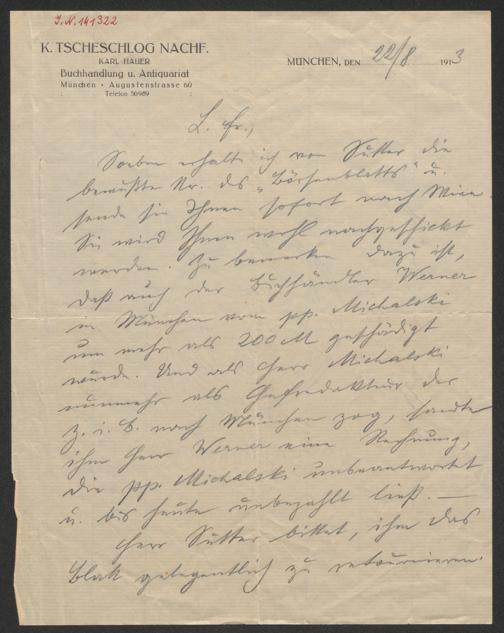 I.N. 141322
K. TSCHESCHLOG NACHF.
KARL HAUER
Buchhandlung u. Antiquariat
München • Augustenstrasse 60
Telefon 50989
MÜNCHEN, DEN 22/8 1913
L. Fr.,
Soeben erhalte ich von Sutter die
bewußte Nr. des "Börsenblatts" u.
sende sie Ihnen sofort nach Wien
Sie wird Ihnen wohl nachgeschickt
werden. Zu bemerken dazu ist,
daß auch der Buchhändler Werner
in München vom pp. Michalski
um mehr als 200 M geschädigt
wurde. Und als Herr Michalski
nunmehr als Chefredakteur der
Z. i. B. nach München zog, sandte
ihm Herr Werner eine Rechnung,
die pp. Michalski unbeantwortet
u. bis heute unbezahlt ließ. —
Herr Sutter bittet, ihm das
Blatt gelegentlich zu retournieren.